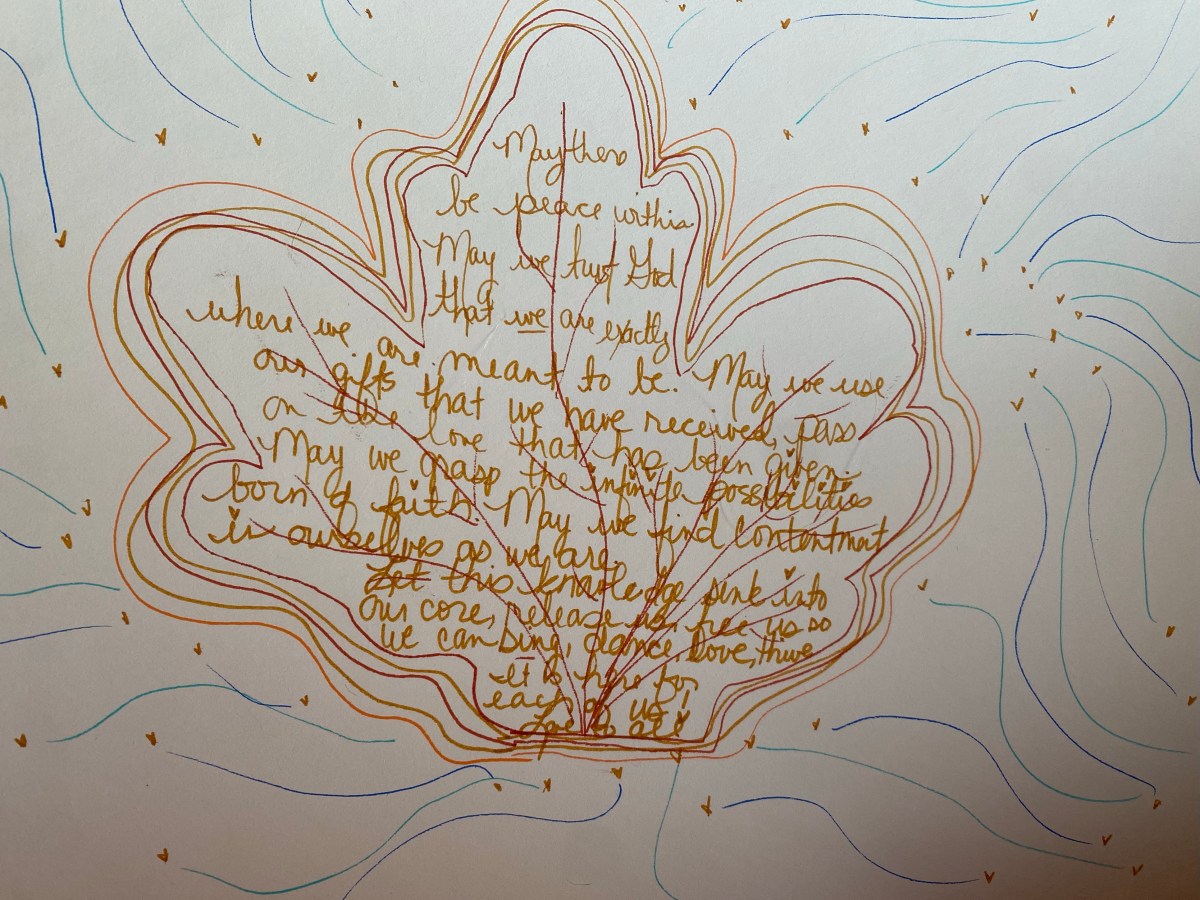 May there
be peace within
May we trust God
that we are exactly
where we are meant to be. May we use
our gifts that we have received, pass
on the love that has been given.
May we grasp the infinite possibilities
born of faith. May we find contentment
in ourselves as we are.
Let this knowledge sink into
our core, release us, free us so
we can sing, dance, love, thrive
It is here for
each of us
all